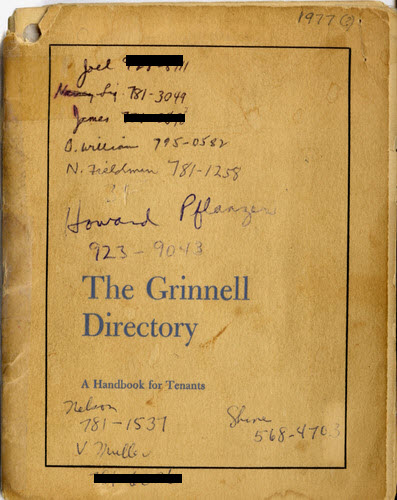 1977(?)
Joel
Nancy Sig 781-3049
James
O. William 795-0582
N. Fieldmen 781-1258
Howard Pflanzer
923-9043
The Grinnell
Directory
A Handbook for Tenants
Nelson
781-1537
Shine
568-4703
V Muller